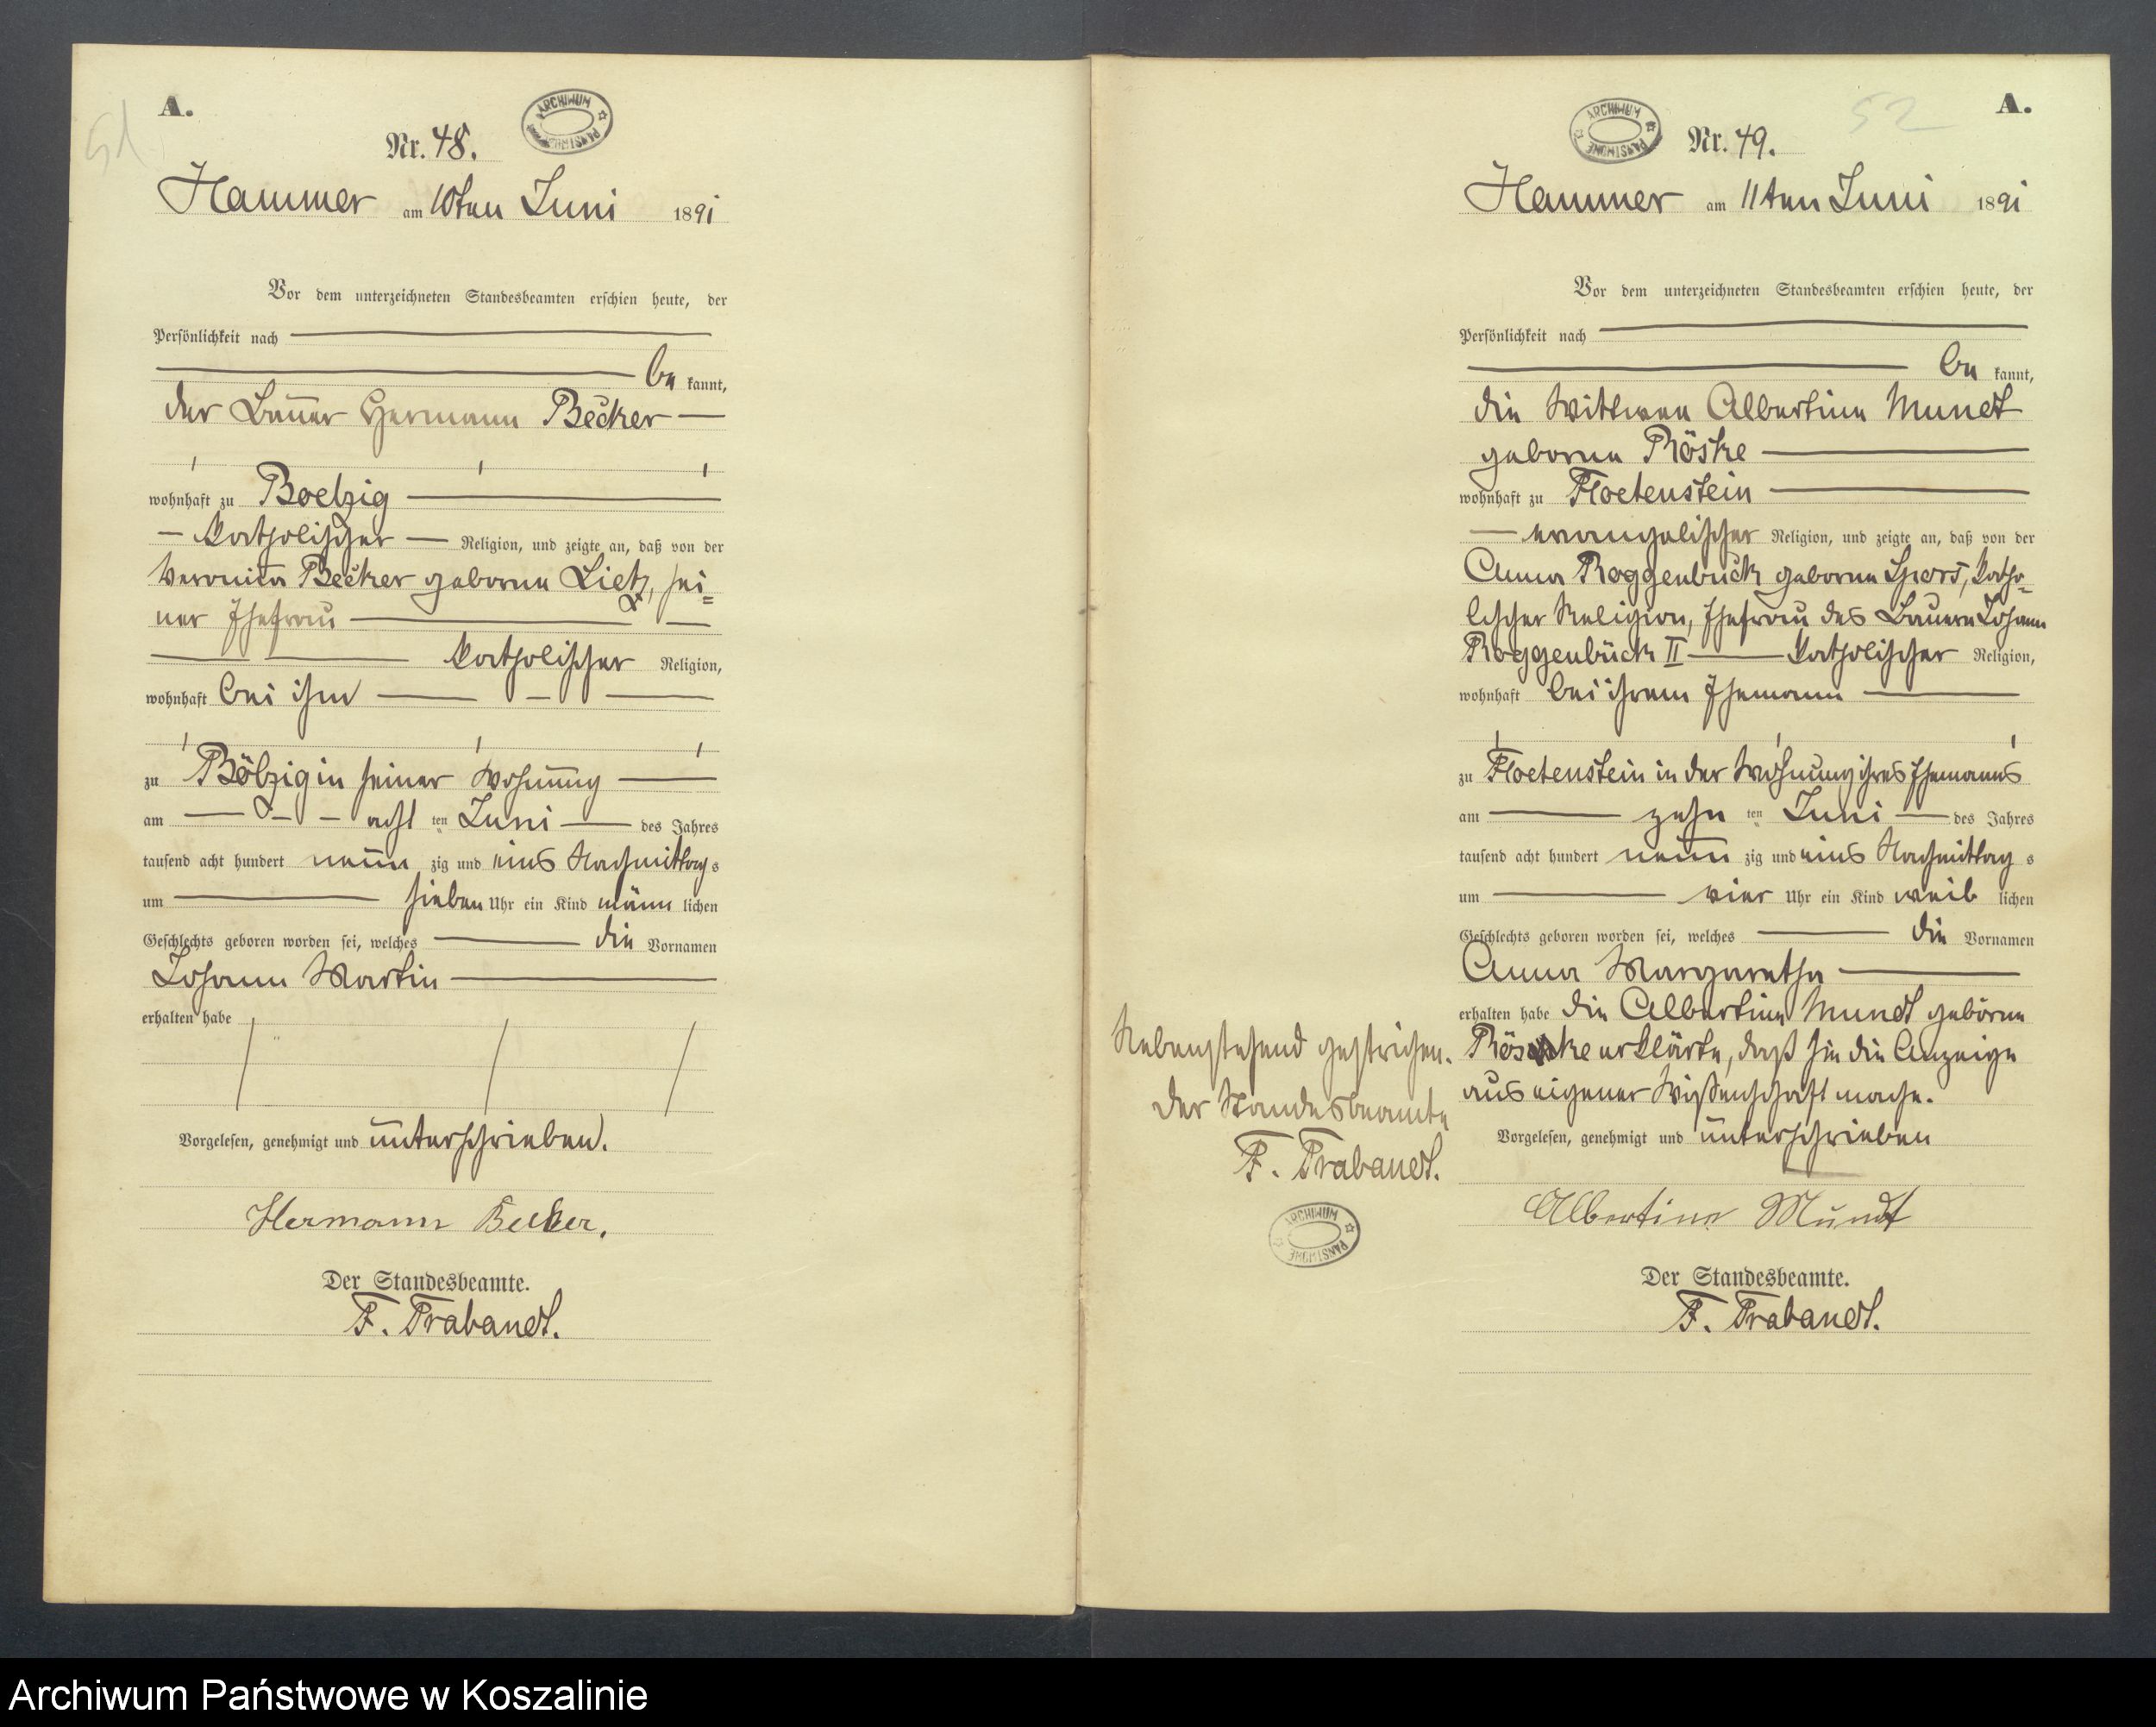 51
A.
ARCHIWUM PAŃSTWOWE
Nr. 48.
Hammer am 10ten Juni 1891
Vor dem unterzeichneten Standesbeamten erschien heute, der
Persönlichkeit nach
be kannt,
der Bauer Hermann Becker
wohnhaft zu Boelzig
katholischer Religion, und zeigte an, daß von der
Veronica Becker geborne Lietz, sei=
ner Ehefrau
katholischer Religion,
wohnhaft bei ihm
zu Bölzig in seiner Wohnung
am acht ten Juni des Jahres
tausend acht hundert neun zig und eins Nachmittag s
um sieben Uhr ein Kind männ lichen
Geschlechts geboren worden sei, welches die Vornamen
Johann Martin
erhalten habe
Vorgelesen, genehmigt und unterschrieben.
Hermann Becker.
Der Standesbeamte.
F. Trabandt.
52
A.
ARCHIWUM PAŃSTWOWE
Nr. 49.
Hammer am 11ten Juni 1891
Vor dem unterzeichneten Standesbeamten erschien heute, der
Persönlichkeit nach
be kannt,
die Wittwee Albertine Mundt
geborne Röske
wohnhaft zu Floetenstein
evangelischer Religion, und zeigte an, daß von der
Anna Roggenbuck geborne Spors, katho=
lischer Religion, Ehefrau des Bauern Johann
Roggenbuck II katholischer Religion,
wohnhaft bei ihrem Ehemann
zu Floetenstein in der Wohnung ihres Ehemanns
am zehn ten Juni des Jahres
tausend acht hundert neun zig und eins Nachmittag s
um vier Uhr ein Kind weib lichen
Geschlechts geboren worden sei, welches die Vornamen
Anna Margaretha
erhalten habe die Albertine Mundt geborne
Röske erklärte, daß sie die Anzeige
aus eigener Wissenschaft mache.
Vorgelesen, genehmigt und unterschrieben
Albertine Mundt
Der Standesbeamte.
F. Trabandt.
Nebenstehend gestrichen.
Der Standesbeamte
F. Trabandt.
ARCHIWUM PAŃSTWOWE
Archiwum Państwowe w Koszalinie